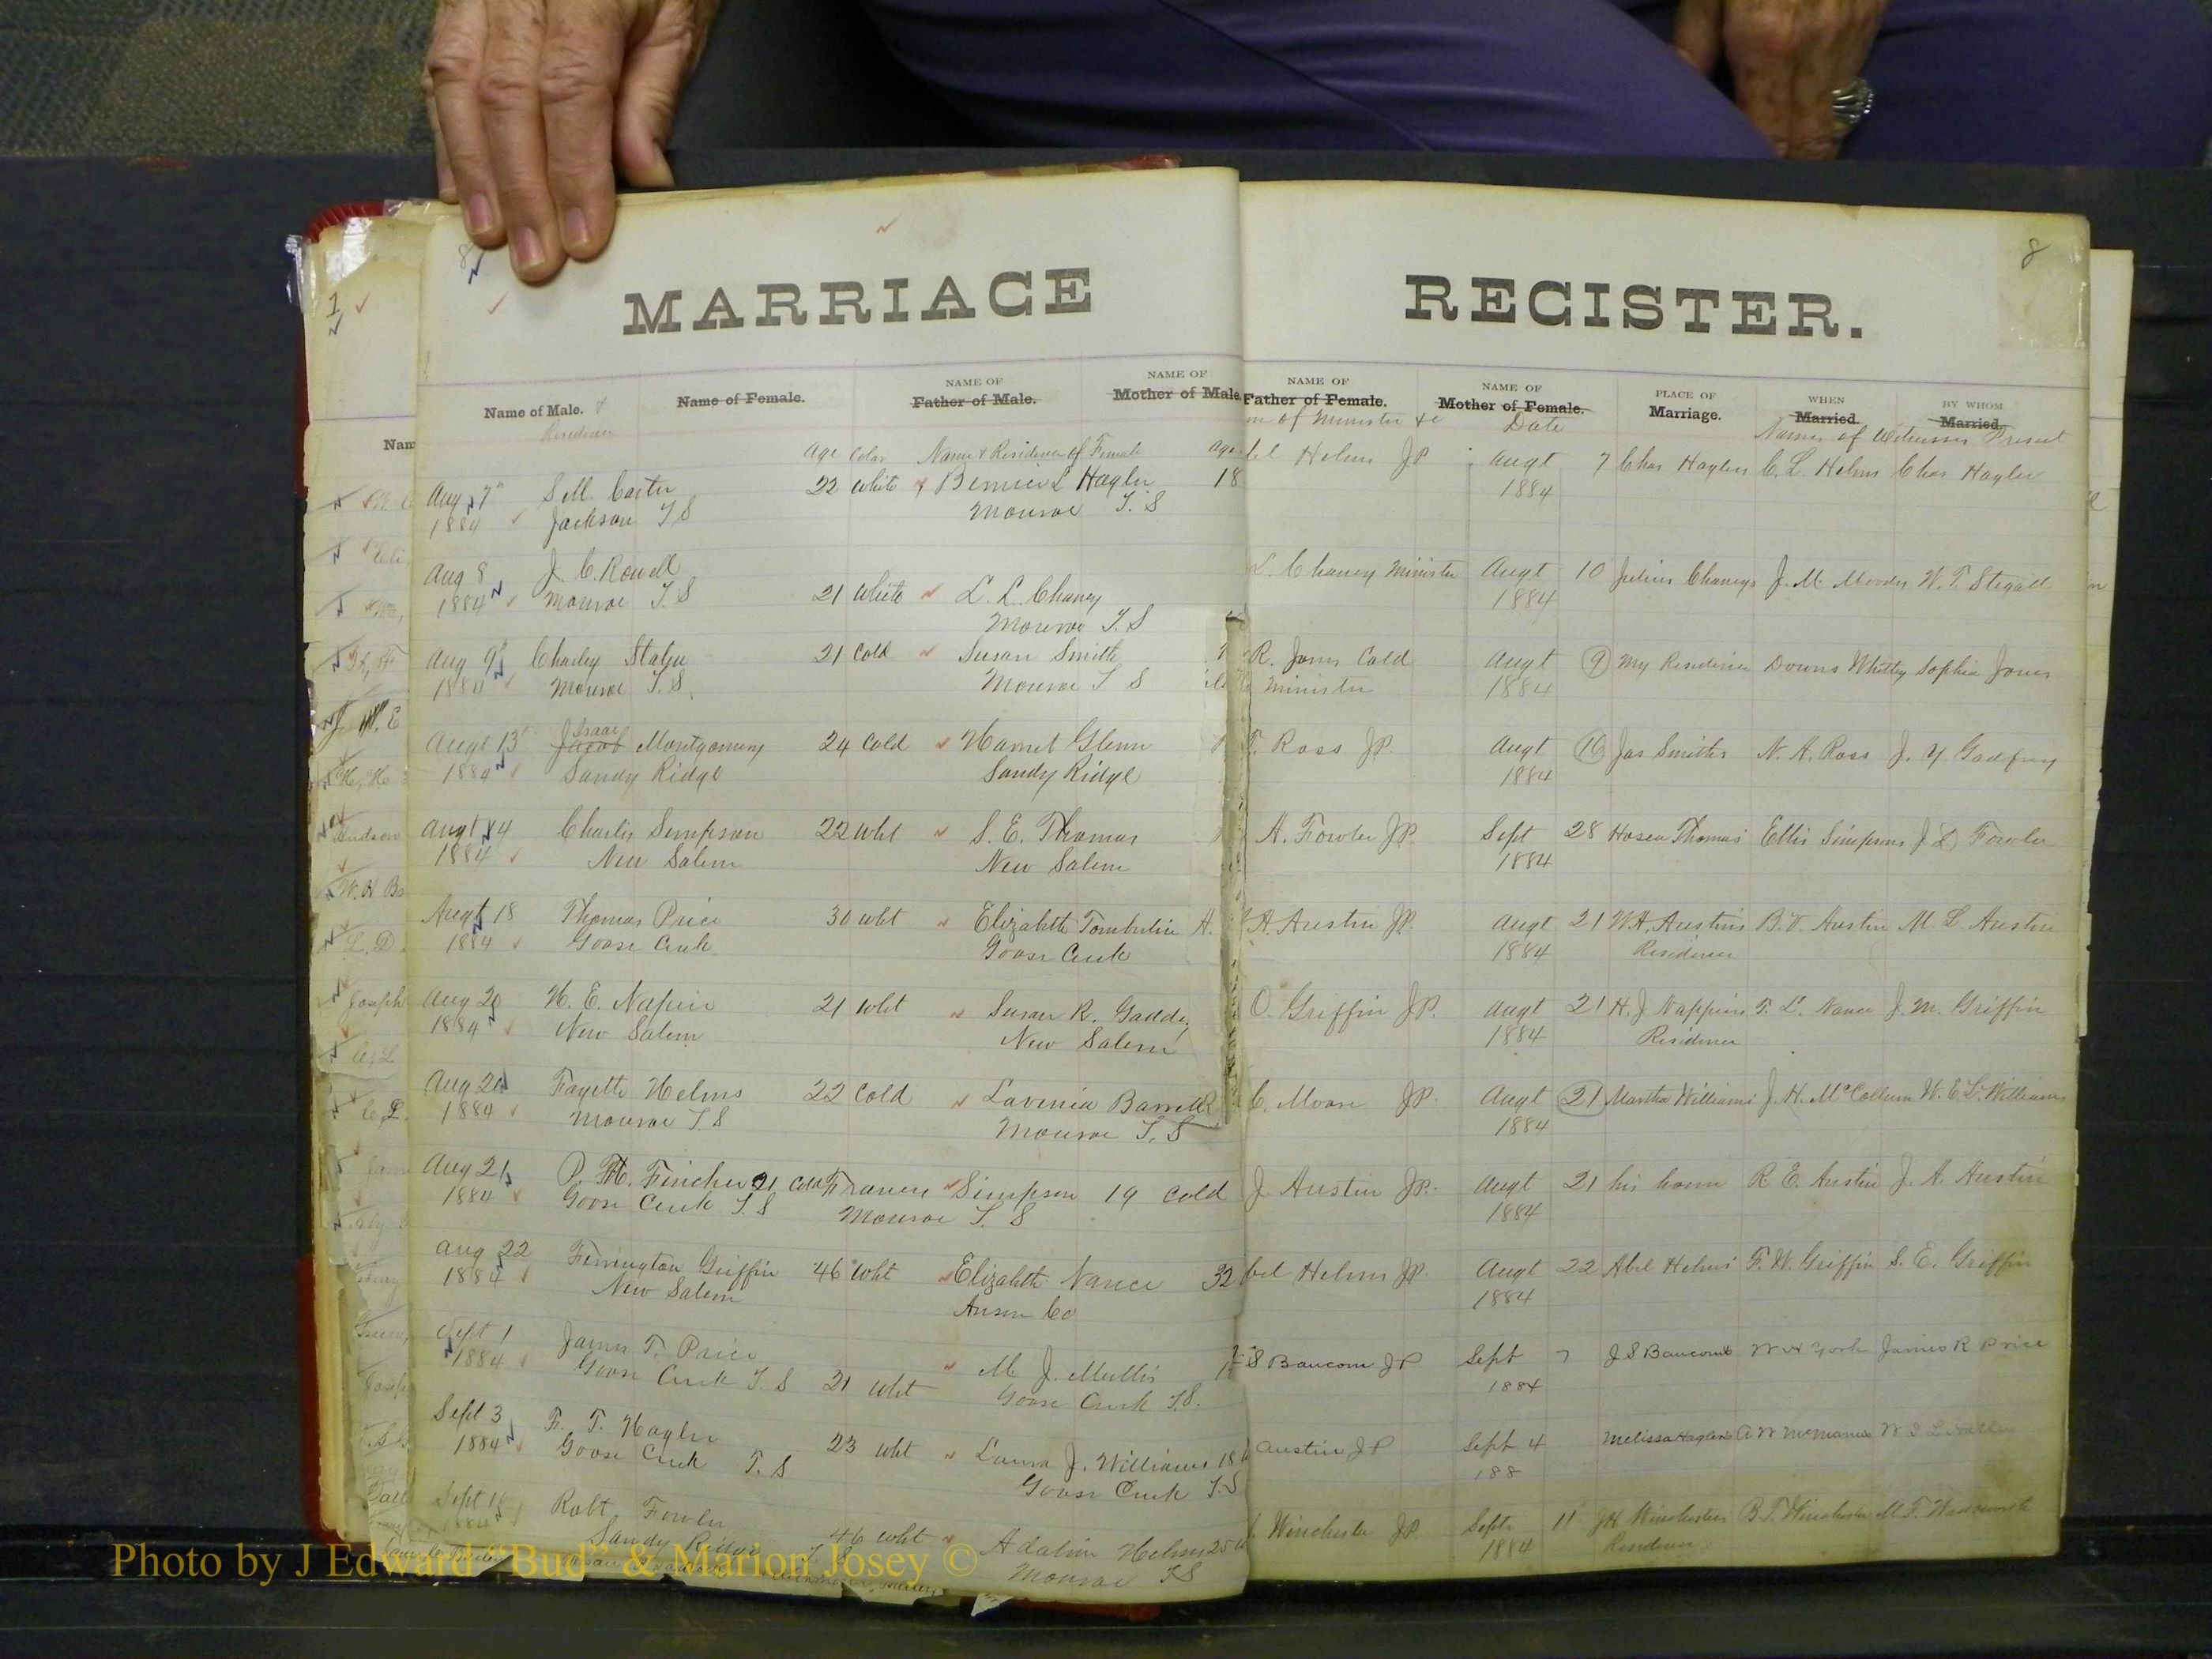 8
MARRIAGE
Name of Male. &
Residence
Name of Female.
NAME OF
Father of Male.
NAME OF
Mother of Male.
Age Color Name & Residence of Female Age
Aug 7" S. M. Carter 22 White Bernice L Hagler 18
1884 Jackson T S Monroe T. S
Aug 8 J. C. Rowell 21 White L. L. Chaney
1884 Monroe T. S Monroe T. S
Aug 9" Charley Staten 21 Cold Susan Smith
1884 Monroe T. S. Monroe T S
Isaac
Augt 13" Jacob Montgomery 24 Cold Harriet Glenn
1884 Sandy Ridge Sandy Ridge
Augt 14 Charlie Simpson 22 wht S. E. Thomas
1884 New Salem New Salem
Augt 18 Thomas Price 30 wht Elizabeth Tomberlin
1884 Goose Creek Goose Creek
Aug 20 H. E. Napier 21 wht Susan R. Gaddy
1884 New Salem New Salem
Aug 20 Fayette Helms 22 Cold Lavenia Barrett
1884 Monroe T. S Monroe T. S
Aug 21 P. H. Fincher 21 Cold Frances Simpson 19 Cold
1884 Goose Creek T. S Monroe T. S
Aug 22 Ferrington Griffin 46 wht Elizabeth Nance 32
1884 New Salem Anson Co
Sept 1 James T. Price 21 wht M J. Mullis
1884 Goose Creek T. S Goose Creek T. S.
Sept 3 F. T. Hagler 23 wht Laura J. Williams 18
1884 Goose Creek T. S Goose Creek T. S
Sept Robt Fowler 46 wht Adaline Helms 25
1884 Sandy Ridge Monroe T S
8
REGISTER.
NAME OF
Father of Female.
of Minister &c
NAME OF
Mother of Female.
Date
PLACE OF
Marriage.
WHEN
Married.
BY WHOM
Married.
Names of Witnesses Present
bel Helms JP Augt 7 Chas Haglers C. L. Helms Chas Hagler
1884
L. Chaney Minister Augt 10 Julius Chaneys J. M. Moody W. T. Stegall
1884
R. Jones Cold Augt 9 My Residence Downs Whitley Sophia Jones
Minister 1884
T. Ross JP. Augt 16 Jas Smiths N. A. Ross J. Y Godfrey
1884
A. Fowler JP. Sept 28 Hosea Thomas' Ellis Simpson J. D Fowler
1884
A. Austin JP. Augt 21 W. A. Austins B. V. Austin M. L. Austin
1884 Residence
O. Griffin JP. Augt 21 H. J Nappiers T. L. Nance J. M. Griffin
1884 Residence
C. Moore JP. Augt 21 Martha Williams' J. H. McCollum W. E. L. Williams
1884
J. Austin JP. Augt 21 his home R. E. Austin J. A. Austin
1884
bel Helms JP. Augt 22 Abel Helms' F. W. Griffin S. E. Griffin
1884
S Baucom JP Sept 7 J S Baucoms W H York James R Price
1884
Austin JP Sept 4 Melissa Haglers A W McManus
188
Winchester JP Sept 11 J H Winchesters B. F. Winchester M. F. Wadsworth
1884 Residence
Photo by J Edward "Bud" & Marion Josey ©